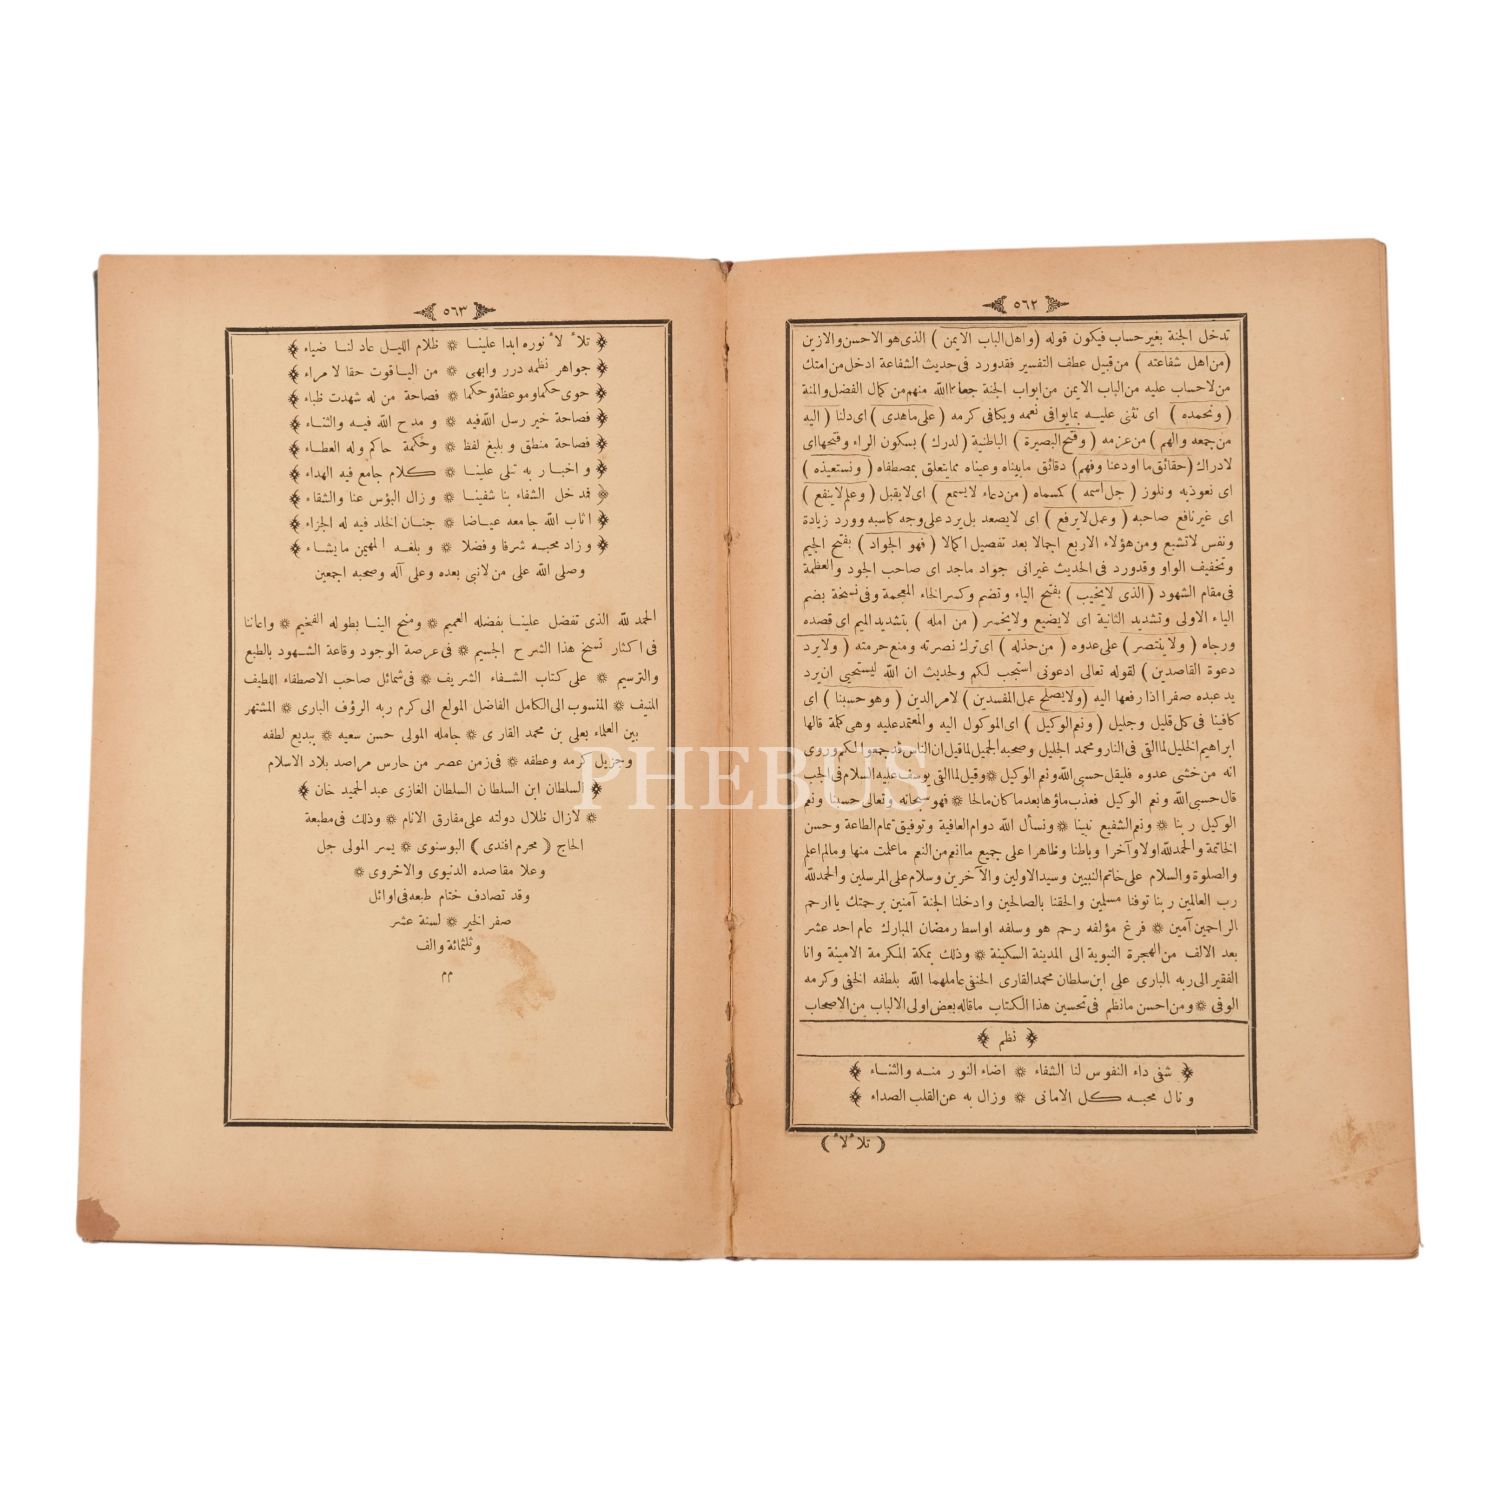 ٥٦٢
تدخل الجنة بغير حساب فيكون قوله ( واهل الباب الايمن ) الذى هو الاحسن والازين
( من اهل شفاعته ) من قبيل عطف التفسير فقدورد فى حديث الشفاعة ادخل من امتك
من لاحساب عليه من الباب الايمن من ابواب الجنة جعلنا الله منهم من كمال الفضل والمنة
( ونحمده ) اى نثنى عليه بمايوافى نعمه ويكافى كرمه ( على ماهدى ) اى دلنا ( اليه
من جمعه والهم ) من عزمه ( وفتح البصيرة ) الباطنية ( لدرك ) بسكون الراء وفتحها اى
لادراك ( حقائق ما اودعنا وفهم ) دقائق مابيناه وعيناه مما يتعلق بمصطفاه ( ونستعيذه )
اى نعوذ به ونلوز ( جل اسمه ) كمسماه ( من دعاء لايسمع ) اى لايقبل ( وعلم لاينفع )
اى غير نافع صاحبه ( وعمل لايرفع ) اى لايصعد بل يرد على وجه كاسبه وورد زيادة
ونفس لاتشبع ومن هؤلاء الاربع اجمالا بعد تفصيل اكمالا ( فهو الجواد ) بفتح الجيم
وتخفيف الواو وقدورد فى الحديث غيرانى جواد ماجد اى صاحب الجود والعظمة
فى مقام الشهود ( الذى لايخيب ) بفتح الياء وتضم وكسر الخاء المعجمة وفى نسخة بضم
الياء الاولى وتشديد الثانية اى لايضيع ولايخسر ( من امله ) بتشديد الميم اى قصده
ورجاه ( ولا ينتصر ) على عدوه ( من خذله ) اى ترك نصرته ومنع حرمته ( ولايرد
دعوة القاصدين ) لقوله تعالى ادعونى استجب لكم ولحديث ان الله ليستحيى ان يرد
يد عبده صفرا اذا رفعها اليه ( ولايصلح عمل المفسدين ) لامر الدين ( وهو حسبنا ) اى
كافينا فى كل قليل وجليل ( ونعم الوكيل ) اى الموكول اليه والمعتمد عليه وهى كلمة قالها
ابراهيم الخليل لما القى فى النار ومحمد الجليل وصحبه الجميل لماقيل ان الناس قدجمعوا لكم وروى
انه من خشى عدوه فليقل حسبى الله ونعم الوكيل ۞ وقيل لما القى يوسف عليه السلام فى الجب
قال حسبى الله ونعم الوكيل فعذب ماؤها بعدما كان مالحا ۞ فهو سبحانه وتعالى حسبنا ونعم
الوكيل ربنا ۞ ونعم الشفيع نبينا ۞ ونسأل الله دوام العافية وتوفيق تمام الطاعة وحسن
الخاتمة والحمدلله اولا وآخرا وباطنا وظاهرا على جميع ماانعم من النعم ماعلمت منها ومالم اعلم
والصلوة والسلام على خاتم النبيين وسيد الاولين والآخرين وسلام على المرسلين والحمدلله
رب العالمين ربنا توفنا مسلمين والحقنا بالصالحين وادخلنا الجنة آمنين برحمتك يا ارحم
الراحمين آمين ۞ فرغ مؤلفه رحم هو وسلفه اواسط رمضان المبارك عام احد عشر
بعد الالف من الهجرة النبوية الى المدينة السكينة ۞ وذلك بمكة المكرمة الامينة وانا
الفقير الى ربه البارى على ابن سلطان محمد القارى الحنفى عاملهما الله بلطفه الخفى وكرمه
الوفى ۞ ومن احسن مانظم فى تحسين هذا الكتاب ماقاله بعض اولى الالباب من الاصحاب
نظم
شفى داء النفوس لنا الشفاء ۞ اضاء النور منه والثناء
ونال محبه كل الامانى ۞ وزال به عن القلب الصداء
( تلاٴلاٴ )
٥٦٣
تلاٴلاٴ نوره ابدا علينا ۞ ظلام الليل عاد لنا ضياء
جواهر نظمه درر وابهى ۞ من الياقوت حقا لا مراء
حوى حكما وموعظة وحكما ۞ فصاحة من له شهدت ظباء
فصاحة خير رسل الله فيه ۞ ومدح الله فيه والثناء
فصاحة منطق وبليغ لفظ ۞ وحكمة حاكم وله العطاء
واخبار به تتلى علينا ۞ كلام جامع فيه الهداء
قد خل الشفاء بنا شفينا ۞ وزال البؤس عنا والشقاء
اثاب الله جامعه عياضا ۞ جنان الخلد فيه له الجزاء
وزاد محبه شرفا وفضلا ۞ وبلغه المهيمن مايشاء
وصلى الله على من لانبى بعده وعلى آله وصحبه اجمعين
الحمد لله الذى تفضل علينا بفضله العميم ۞ ومنح الينا بطوله الفخيم ۞ واعاننا
فى اكثار نسخ هذا الشرح الجسيم ۞ فى عرصة الوجود وقاعة الشهود بالطبع
والترسيم ۞ على كتاب الشفاء الشريف ۞ فى شمائل صاحب الاصطفاء اللطيف
المنيف ۞ المنسوب الى الكامل الفاضل المولع الى كرم ربه الرؤف البارى ۞ المشتهر
بين العلماء بعلى بن محمد القارى ۞ جامله المولى حسن سعيه ۞ ببديع لطفه
وجزيل كرمه وعطفه ۞ فى زمن عصر من حارس مراصد بلاد الاسلام
السلطان ابن السلطان السلطان الغازى عبد الحميد خان
۞ لازال ظلال دولته على مفارق الانام ۞ وذلك فى مطبعة
الحاج ( محرم افندى ) البوسنوى ۞ يسر المولى جل
وعلا مقاصده الدنيوى والاخروى ۞
وقد تصادف ختام طبعه فى اوائل
صفر الخير ۞ لسنة عشر
وثلثمائة والف
م م
PHEBUS